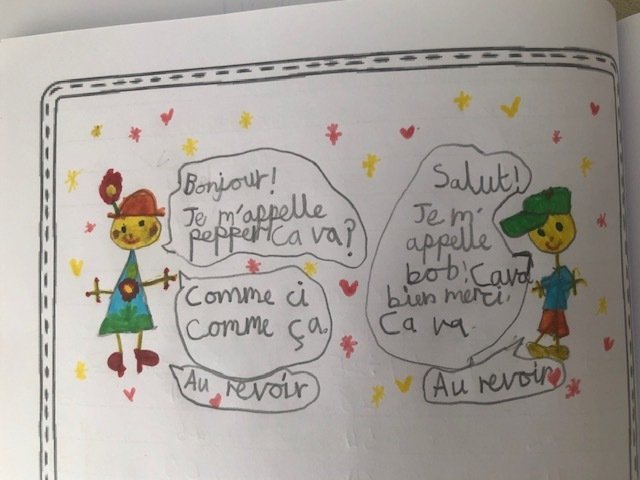 Bonjour!
Je m'appelle
pepper Ca va?
Comme ci
Comme ça.
Au revoir
Salut!
Je m'
appelle
bob! Cava
bien merci.
Ca va.
Au revoir